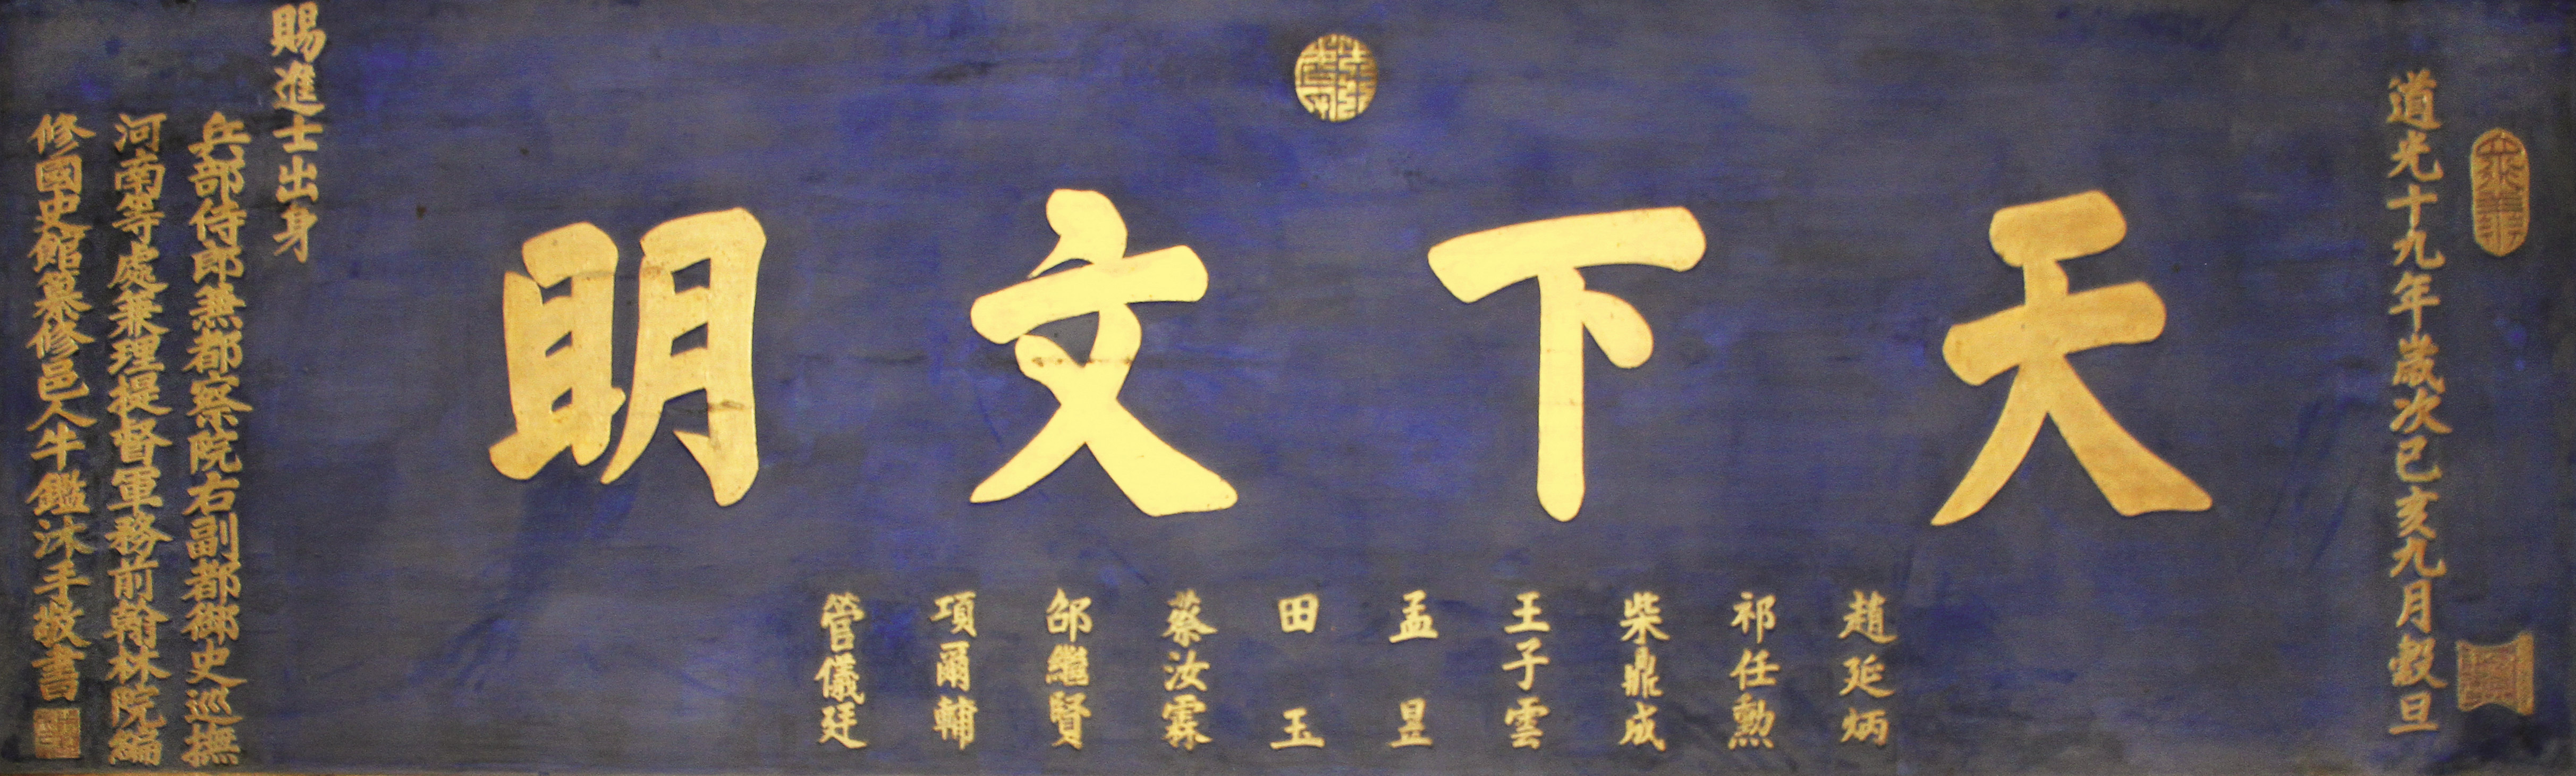 道光十九年歲次己亥九月穀旦
天下文明
趙延炳
祁任勲
柴鼎成
王子雲
孟昱
田玉
蔡汝霖
邵繼賢
項爾輔
管儀廷
賜進士出身
兵部侍郎兼都察院右副都御史巡撫
河南等處兼理提督軍務前翰林院編
修國史館纂修邑人牛鑑沐手敬書